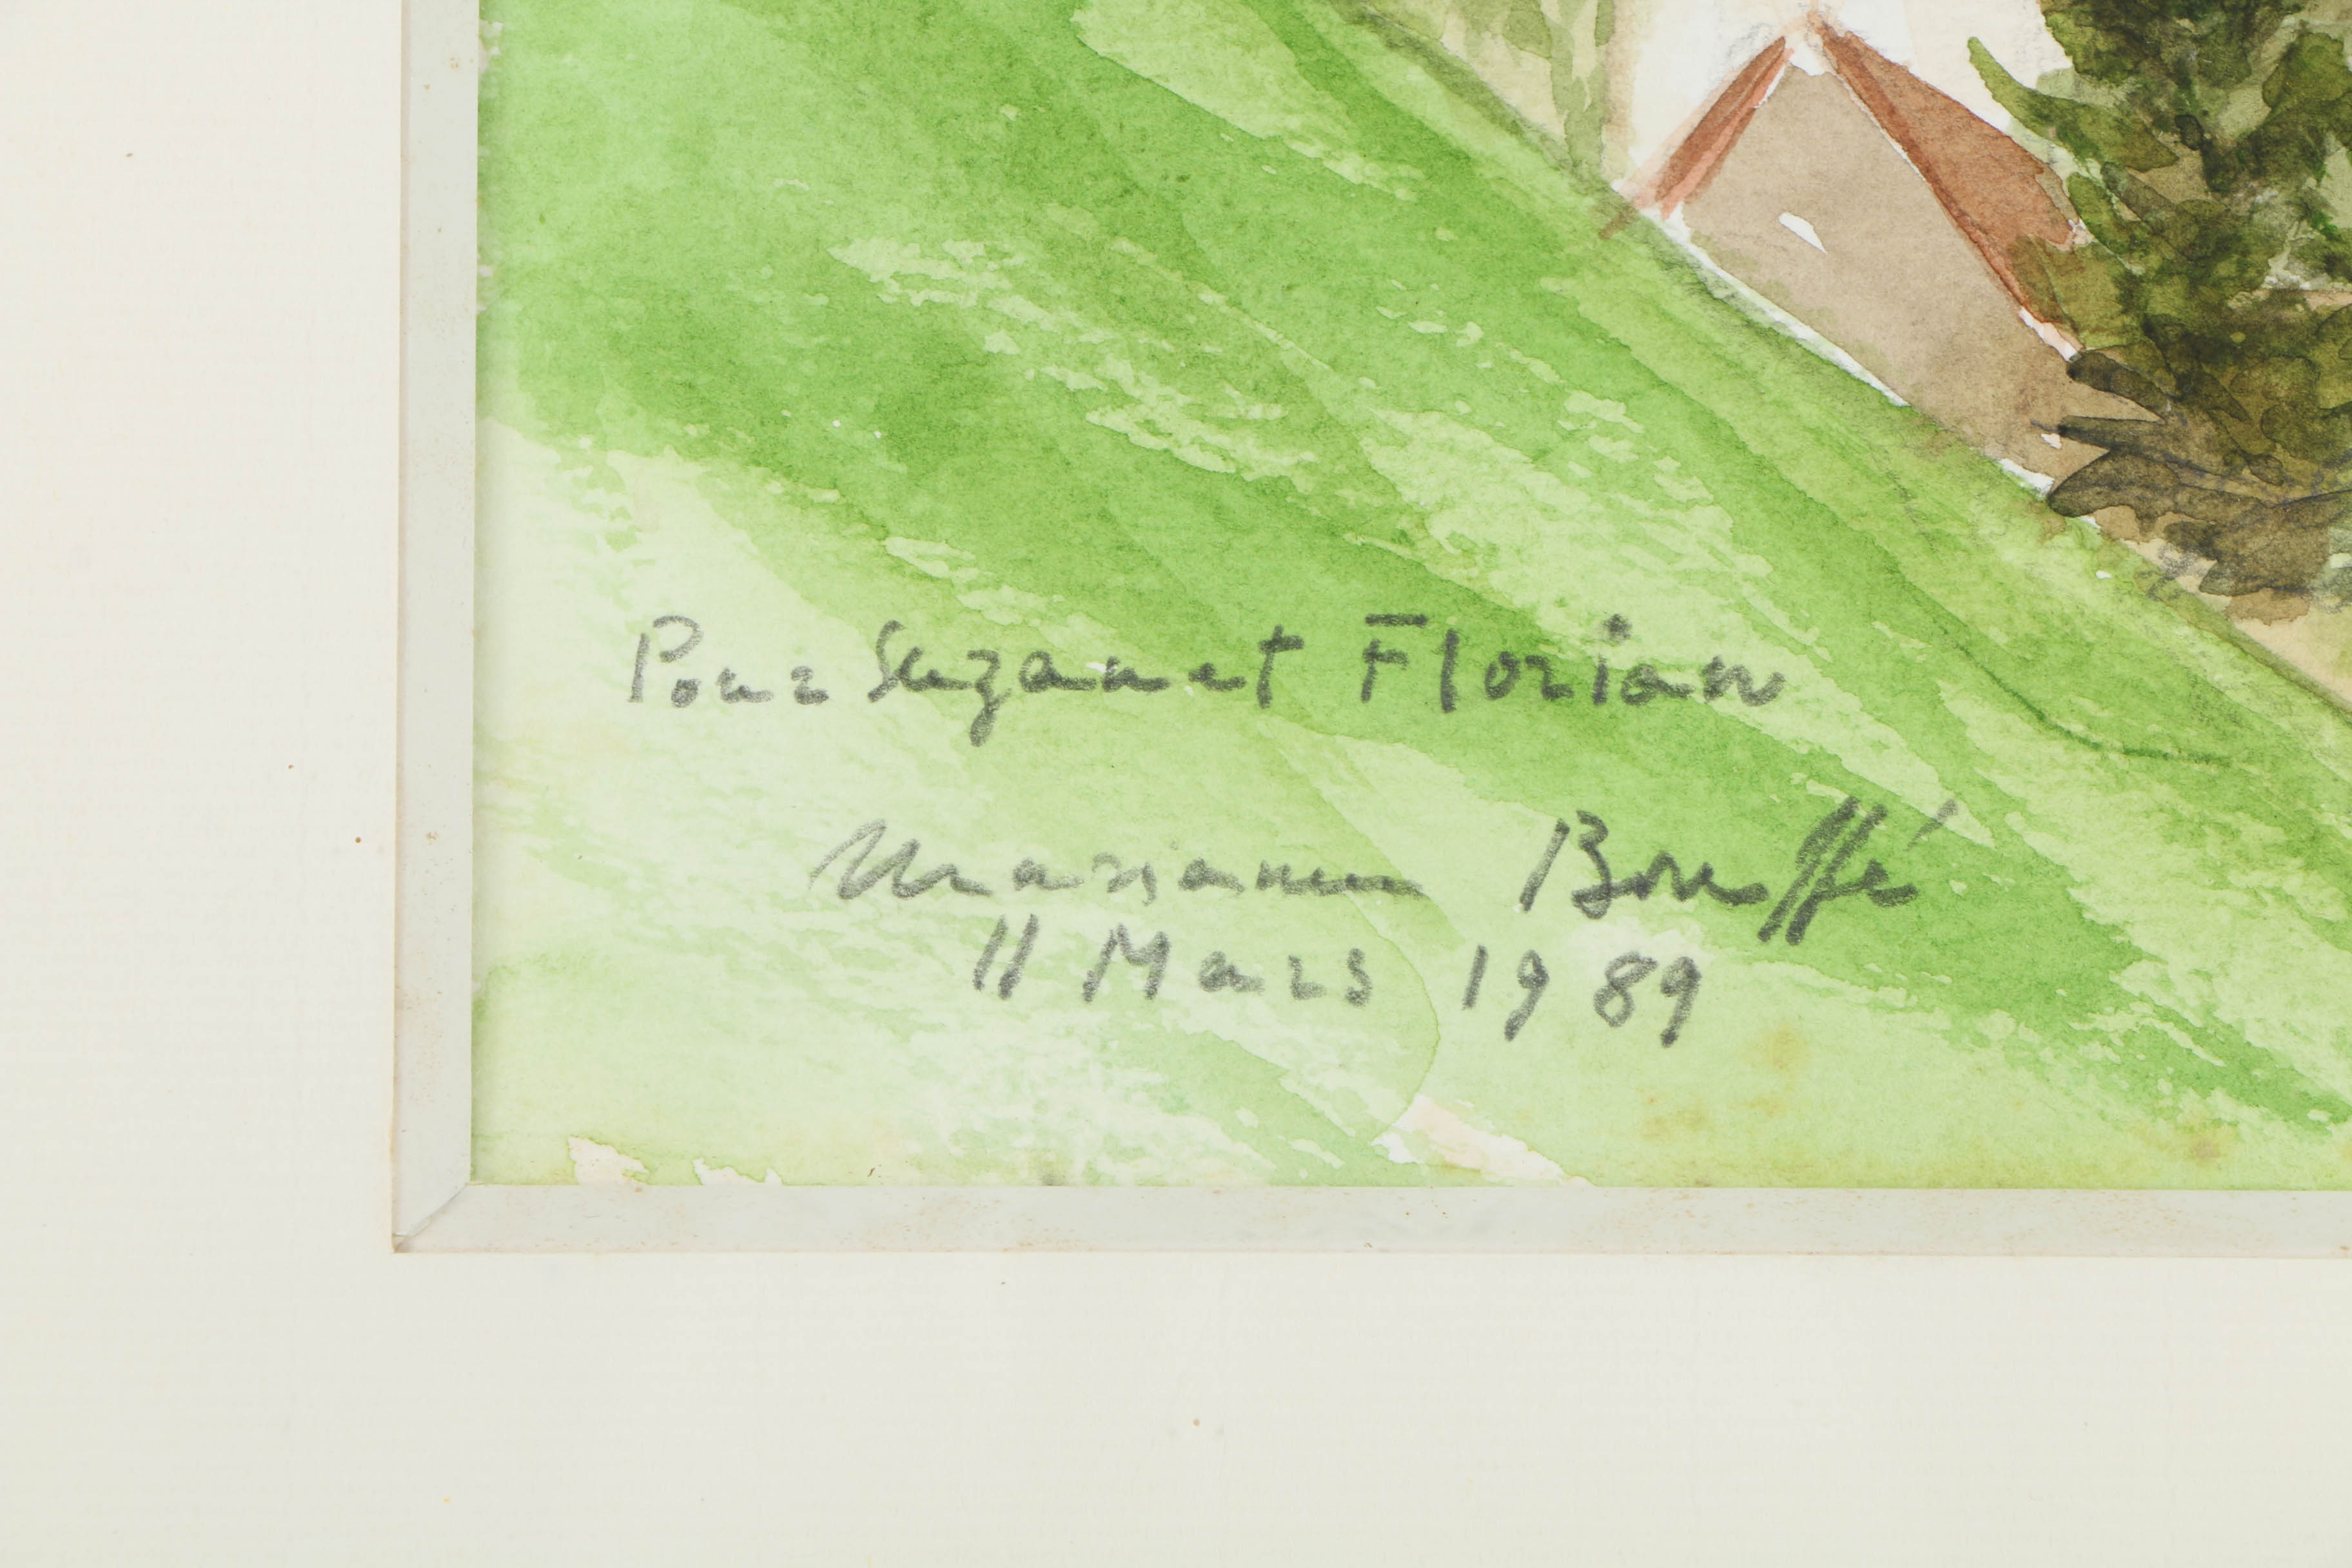 Pour Suzan et Florian
Marianne Bouffé
11 Mars 1989